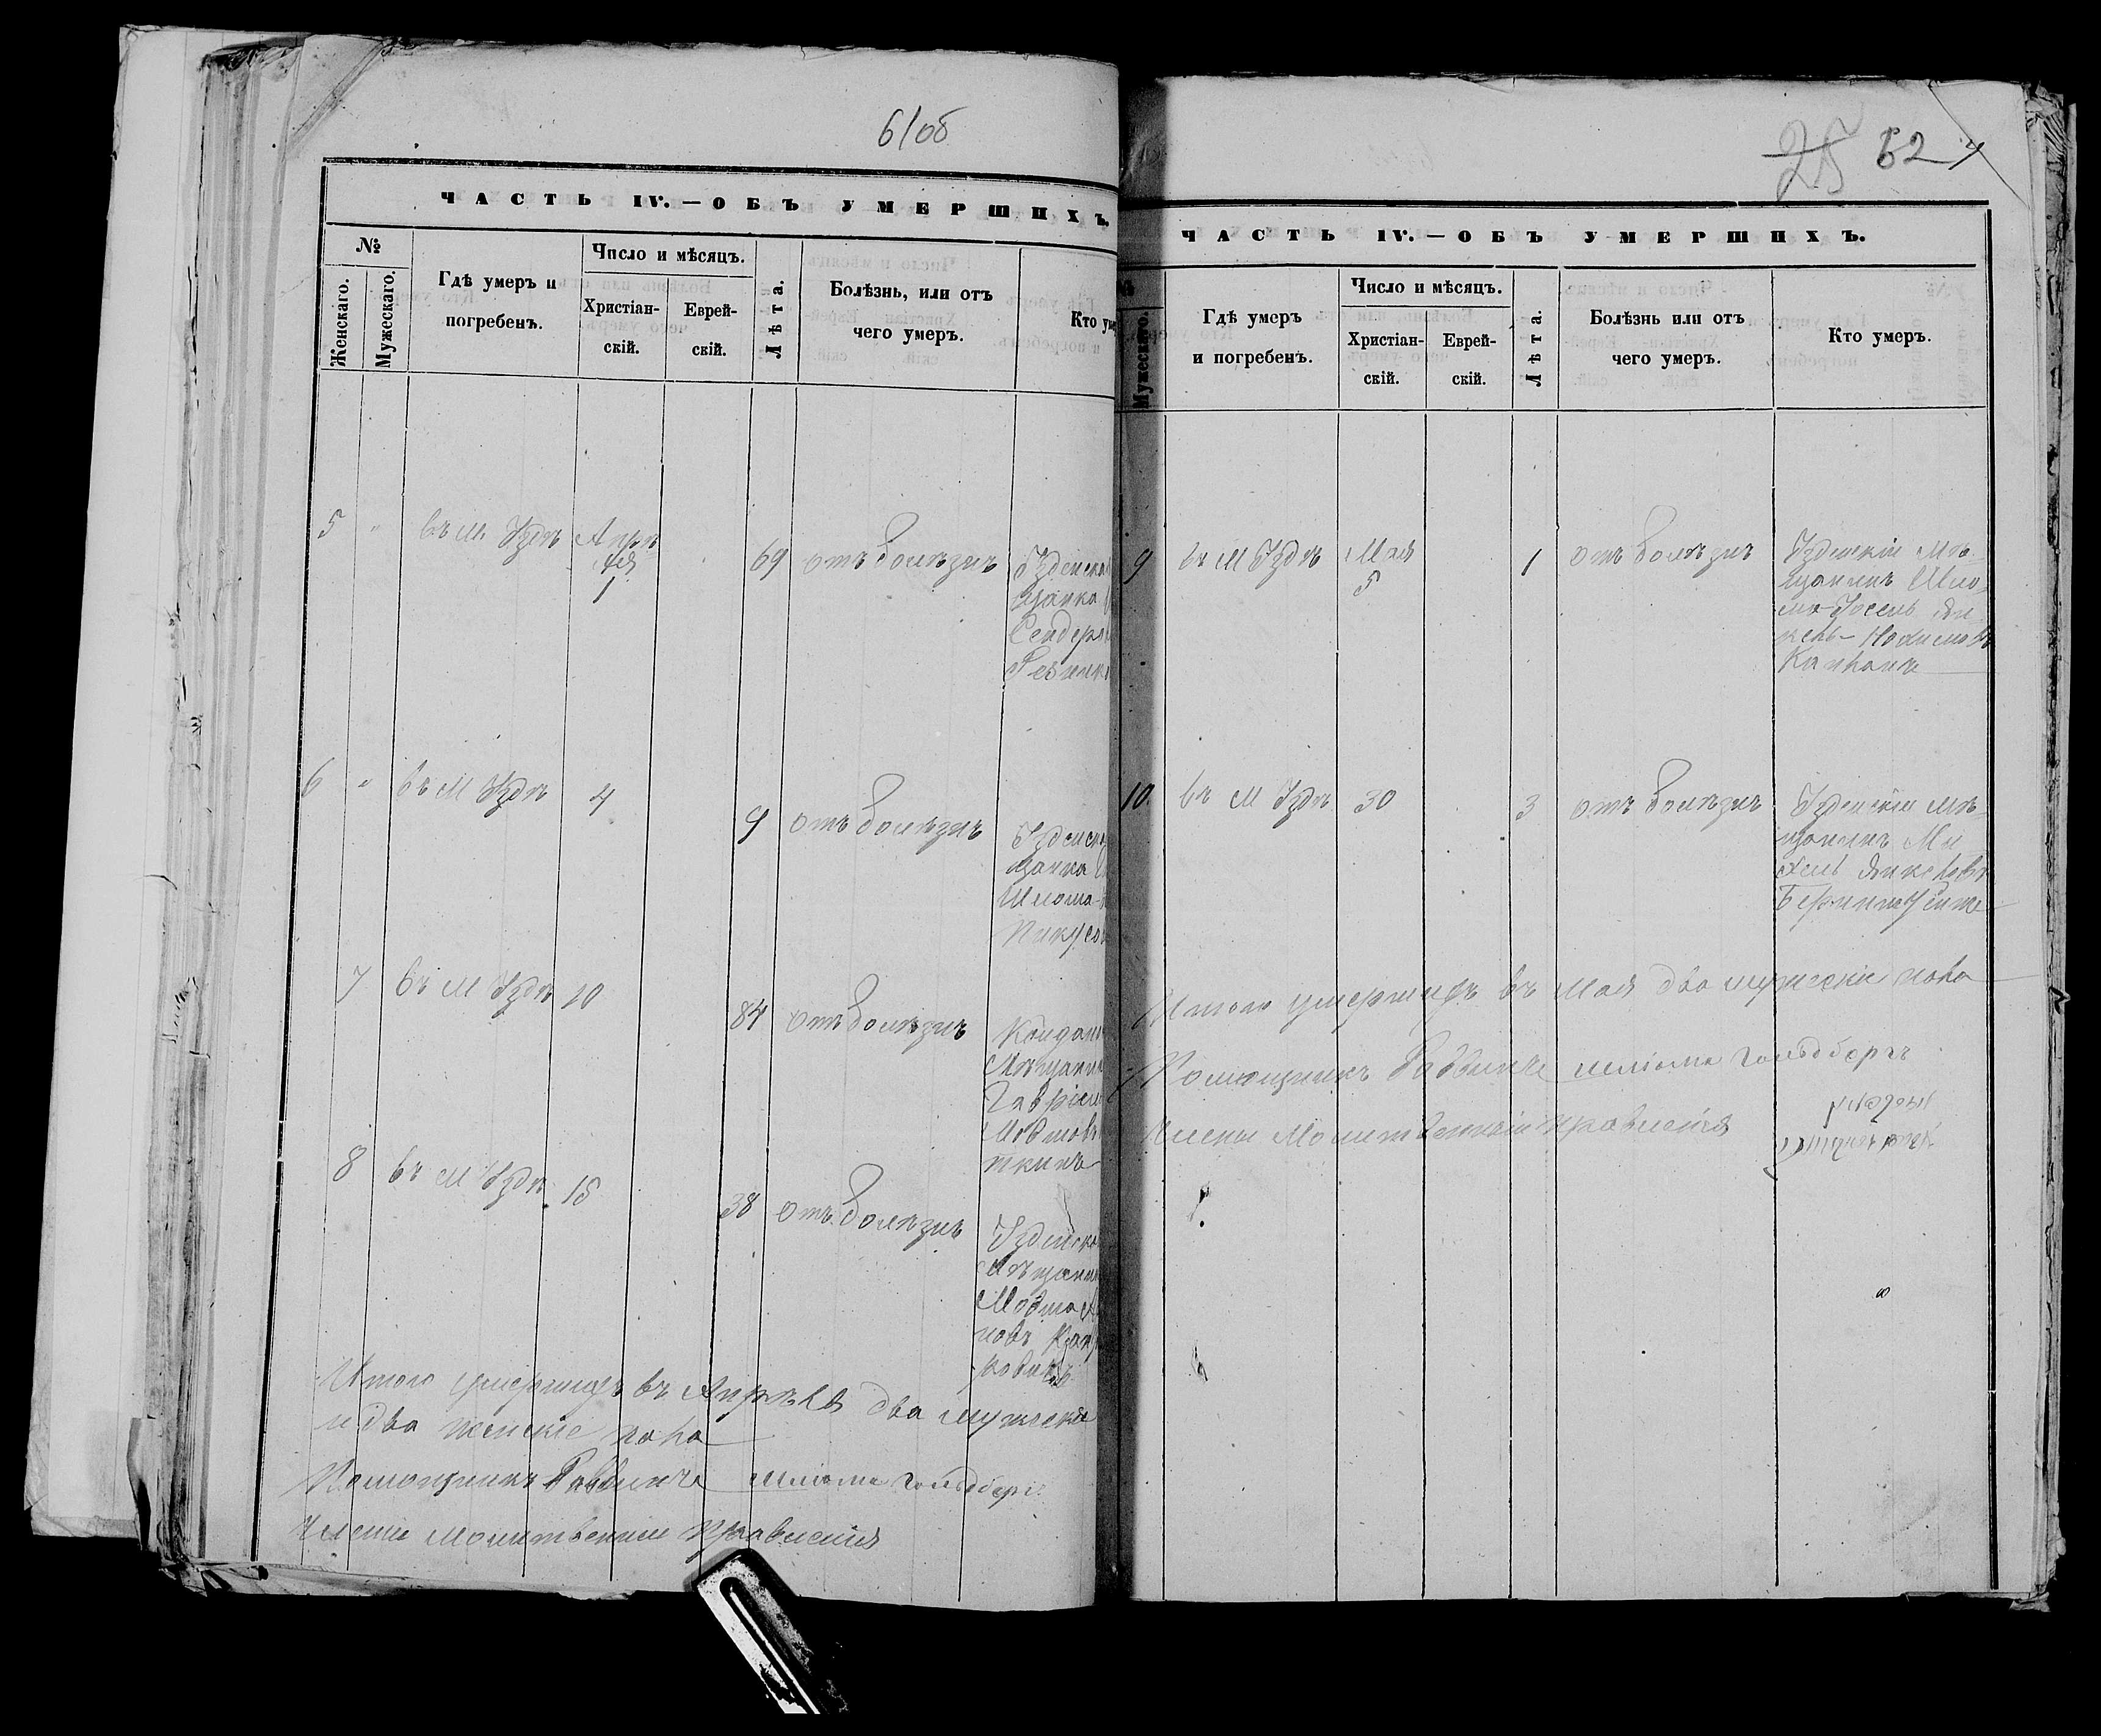 61об
ЧАСТЬ IV.—ОБЪ УМЕРШИХЪ.
№
Женскаго.
Мужескаго.
Гдѣ умеръ и
погребенъ.
Число и мѣсяцъ.
Христіан-
скій.
Еврей-
скій.
Лѣта.
Болѣзнь, или отъ
чего умеръ.
Кто уме
5 " въ м Уздѣ Апрѣ
ля
1
69 отъ болѣзнѣ
Узденска
щанка
Сендеро
6 " въ М Уздѣ 4
9 отъ болѣзнѣ
Узденска
щанка
Шлома
7 въ М Уздѣ 10
84 отъ болѣзнѣ
Койдан
Мѣщанин
Гаврiел
Мовшов
8 въ М Уздѣ 15
38 отъ болѣзнѣ
Узденск
Мѣщанин
Мовша
новъ
Итого умершихъ въ Апрѣля два мужеске
и два женскiе пола
Помощникъ Раввина Шліома Гольдбергъ
Члены молитвенной Правленiя
25 62
ЧАСТЬ IV.—ОБЪ УМЕРШИХЪ.
№
Мужескаго.
Гдѣ умеръ
и погребенъ.
Число и мѣсяцъ.
Христіан-
скій.
Еврей-
скій.
Лѣта.
Болѣзнь или отъ
чего умеръ.
Кто умеръ.
9 въ М Уздѣ Мая
5
1 отъ болѣзнѣ
Узденскiй мѣ-
щанинъ Шлo-
ма-Iосель Ян
кель-Нохимовъ
Капланъ
10. въ М Уздѣ 30
3 отъ болѣзнѣ
Узденскiй мѣ-
щанинъ Ми
хель Янкелевъ
Итого умершихъ въ Мая два мужескiе пола
Помощникъ Раввина Шліома Гольдбергъ
Члены Молитвенной Правленiя